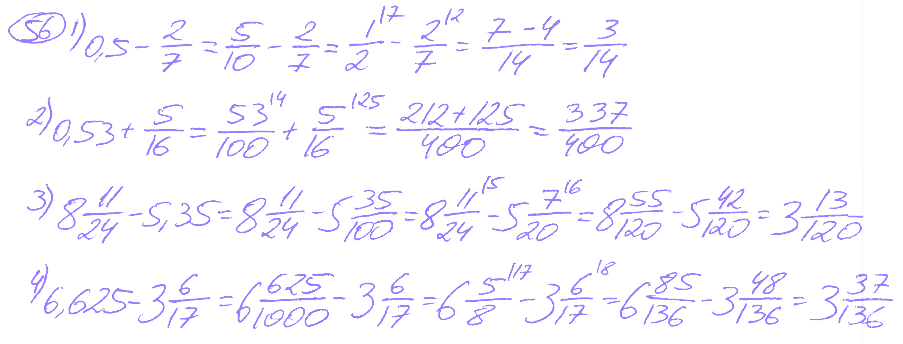 56 1) 0,5 - 2/7 = 5/10 - 2/7 = 1/2 |7 - 2/7 |2 = 7-4/14 = 3/14
2) 0,53 + 5/16 = 53/100 |4 + 5/16 |25 = 212+125/400 = 337/400
3) 8 11/24 - 5,35 = 8 11/24 - 5 35/100 = 8 11/24 |5 - 5 7/20 |6 = 8 55/120 - 5 42/120 = 3 13/120
4) 6,625 - 3 6/17 = 6 625/1000 - 3 6/17 = 6 5/8 |17 - 3 6/17 |8 = 6 85/136 - 3 48/136 = 3 37/136